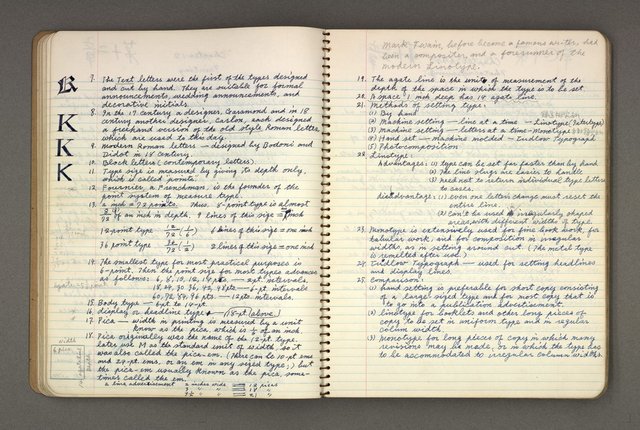 K
K
K
K
7. The Text letters were the first of the types designed
and cut by hand. They are suitable for formal
announcements, wedding announcements, and
decorative initials.
8. In the 17 century a designer, Garamond and in 18
century another designer, Caslon, each designed
a freehand version of the old style Roman letter
which are used to this day.
9. Modern Roman letters — designed by Bodoni and
Didot in 18 century.
10. Block letters (contemporary letters).
11. Type size is measured by giving its depth only,
which is called points.
12. Fournier, a Frenchman, is the founder of the
point system of measure type.
13. a inch = 72 points. Thus 8-point type is almost
of an inch in depth. 9 lines of this size = inch
12-point type 12/72 (1/6) 6 lines of this size = one inch
36 point type 36/72 (1/2) 2 lines of this size = one inch
14. The smallest type for most practical purposes is
6-point. Then the point size for most types advances
as follows: 6, 8, 10, 12, 14 pts — 2 pt. intervals,
18, 24, 30, 36, 42, 48 pts — 6 pt. intervals
60, 72, 84, 96 pts. — 12 pts. intervals.
15. Body type — 6 pt to 14 pt.
16. display or headline type — (18-pt above)
17. Pica — width in printing is measured by a unit
know as the pica, which is 1/6 of an inch.
18. Pica originally was the name of the 12-pt. type.
later use M as the standard unit of width, so it
was also called the pica-em. (There can be 10-pt ems
and 24-pt. ems, or an em in any sized type;) but
the pica-em usually known as the pica, some-
times called the em.
a line advertisement 2 inches wide = 12 picas
3 " " = 18 "
3 1/2 " " = 21 "
width
6 pica
Mark Twain, before become a famous writer, had
been a compositor, and a foresummer of the
modern Linotype.
19. The agate line is the unit of measurement of the
depth of the space in which the type is to be set.
20. A space 1 inch deep has 14 agate line.
21. Methods of setting type:
(1) By hand
(2) Machine setting — line at a time — Linotype (Intertype)
(3) Machine setting — letters at a time — Monotype
(4) Hand set — machine molded — Ludlow Typograph
(5) Photocomposition
22. Linotype:
Advantages: (1) type can be set far faster than by hand
(2) The slugs are easier to handle
(3) need not to return individual type letters
to cases.
disadvantage: (1) even one letter change must reset the
entire line
(2) Can't be used in irregularly shaped
areas, with different widths of type.
23. Monotype is extensively used for fine book work, for
tabular work, and for composition in irregular
widths, as in going around cut. (The metal type
is remelted after use.)
24. Ludlow Typograph — used for setting headlines
and display lines.
25. Comparison:
(1) hand setting is preferable for short copy consisting
of a large sized type and for most copy that is
to go into a publication advertisement.
(2) linotype for booklets and other long pieces of
copy to be set in uniform type and in regular
column width.
(3) monotype for long pieces of copy in which many
revisions may be made, or in which the type has
to be accommodated to irregular column widths.